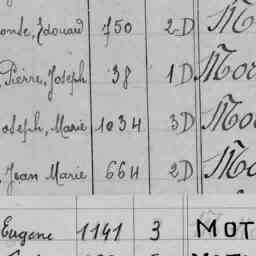 onde, Edouard 750 2D M
Pierre, Joseph 38 1D Mor
oseph, Marie 1034 3D Mo
Jean Marie 664 2D Mo
Eugene 1141 3 MOT